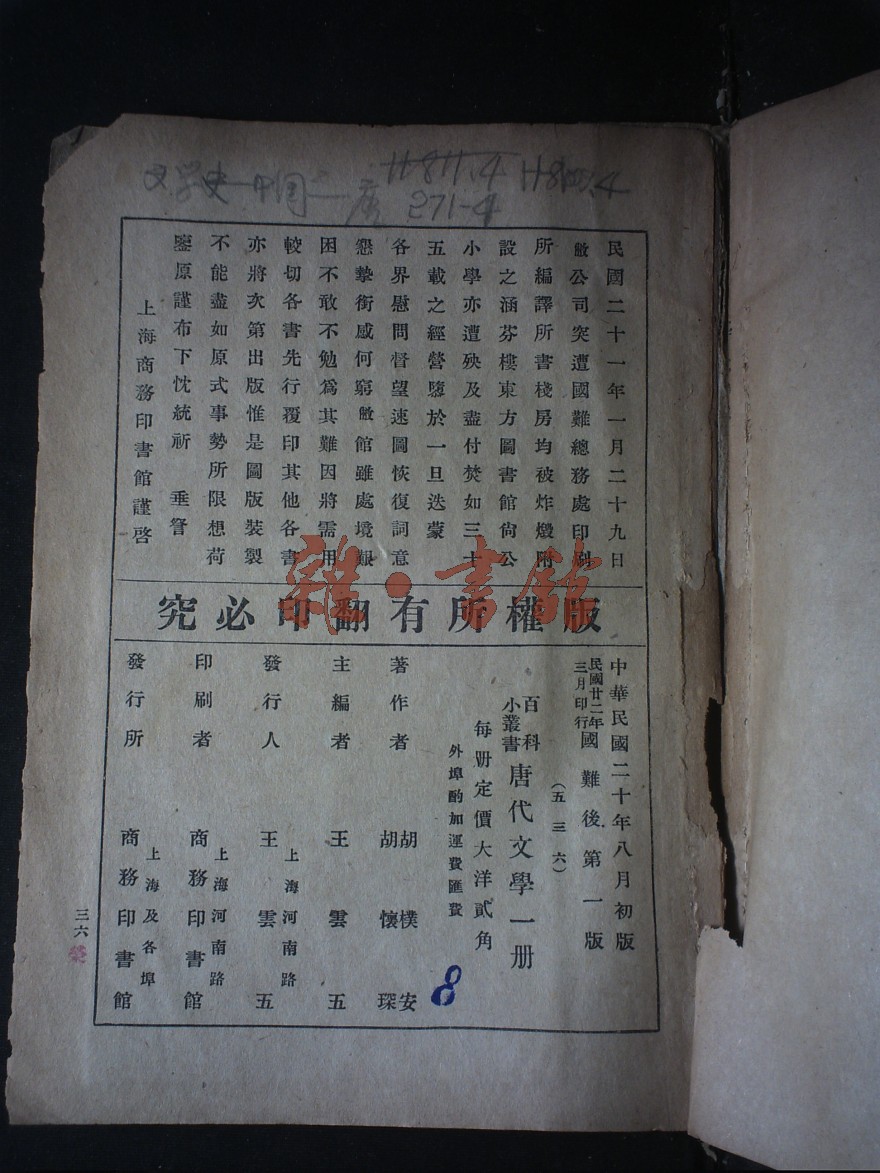 文学史—中国—唐
H811.4
271-4
民國二十一年一月二十九日
敝公司突遭國難總務處印刷
所編譯所書棧房均被炸燬附
設之涵芬樓東方圖書館尙公
小學亦遭殃及盡付焚如三十
五載之經營墮於一旦迭蒙
各界慰問督望速圖恢復詞意
懇摯銜感何窮敝館雖處境艱
困不敢不勉爲其難因將需用
較切各書先行覆印其他各書
亦將次第出版惟是圖版裝製
不能盡如原式事勢所限想荷
鑒原謹布下忱統祈 垂詧
上海商務印書館謹啓
版權所有翻印必究
中華民國二十年八月初版
民國廿二年三月印行國難後第一版
(五三六)
百科小叢書唐代文學一册
每册定價大洋貳角
外埠酌加運費匯費
著作者 胡樸安 胡懷琛
主編者 王雲五
發行人 上海河南路 王雲五
印刷者 上海河南路 商務印書館
發行所 上海及各埠 商務印書館
8
三六
雜·書館